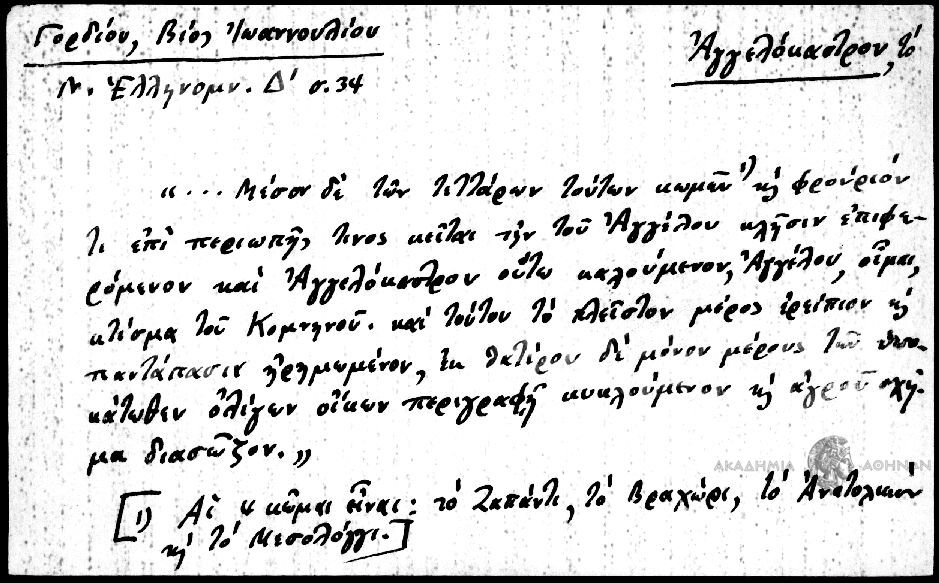 Γορδίου, Βίος Ἰωαννουλίου
Ν. Ἑλληνομν. Δ' σ. 34
Ἀγγελόκαστρον, τό
«... Μέσον δὲ τῶν τεττάρων τούτων κωμῶν 1) κ̣ φρούριόν
τι ἐπὶ περιωπῆς τινος κεῖται τὴν τοῦ Ἀγγέλου κλῆσιν ἐπιφε-
ρόμενον καὶ Ἀγγελόκαστρον οὕτω καλούμενον, Ἀγγέλου, οἶμαι,
κτίσμα τοῦ Κομνηνοῦ. καὶ τούτου τὸ πλεῖστον μέρος ἐρείπιον ϗ
παντάπασιν ἠρημωμένον, ἐκ θατέρου δὲ μόνον μέρους τῶν ὑπο-
κάτωθεν ὀλίγων οἴκων περιγραφῇ κυκλούμενον ϗ ἀγροῦ σχῆ-
μα διασῶζον.»
[1) Αἱ 4 κῶμαι εἶναι: τὸ Ζαπάντι, τὸ Βραχώρι, τὸ Ἀνατολικόν
ϗ τὸ Μεσολόγγι.]
ΑΚΑΔΗΜΙΑ ΑΘΗΝΩΝ